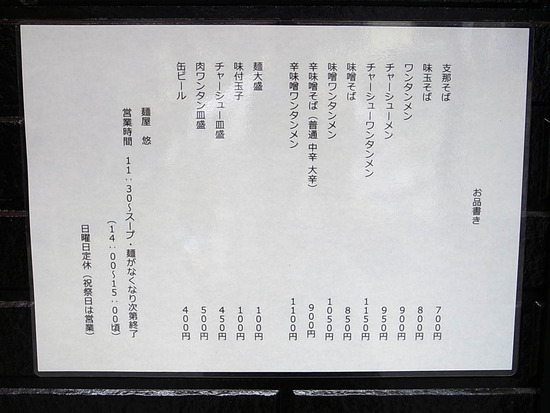 お品書き
支那そば 700円
味玉そば 800円
ワンタンメン 900円
チャーシューメン 950円
チャーシューワンタンメン 1150円
味噌そば 850円
味噌ワンタンメン 1050円
辛味噌そば（普通 中辛 大辛） 900円
辛味噌ワンタンメン 1100円
麺大盛 100円
味付玉子 100円
チャーシュー皿盛 450円
肉ワンタン皿盛 500円
缶ビール 400円
麺屋 悠
営業時間 11：30～スープ・麺がなくなり次第終了
（14：00～15：00頃）
日曜日定休（祝祭日は営業）